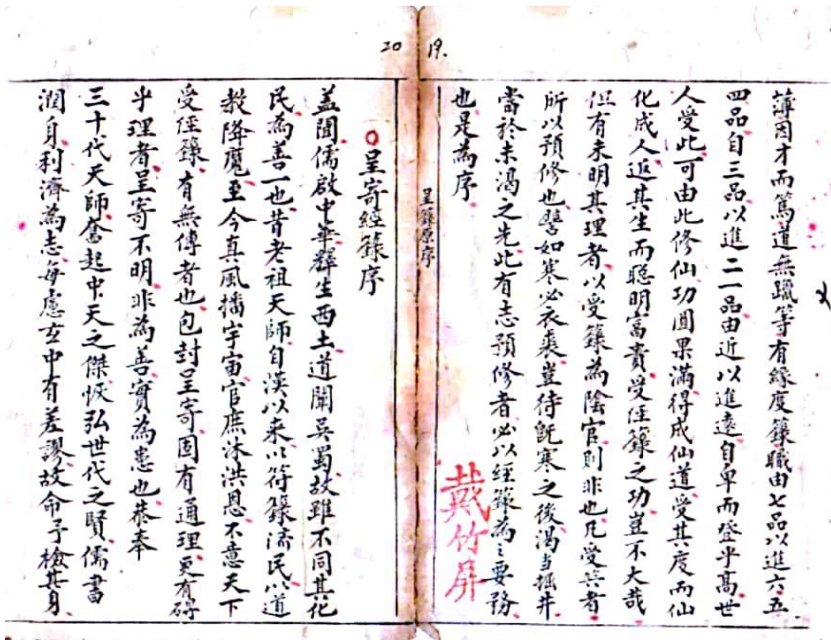 19.
薄因才而篤道無躐等有緣度籙職由七品以進六五
四品自三品以進二一品由近以進遠自卑而登乎高世
人受此可由此修仙功圓果滿得成仙道受其度而仙
化成人返其生而聰明富貴受經籙之功豈不大哉
但有未明其理者以受籙為陰官則非也凡受此者
所以預修也譬如寒必衣裘豈待既寒之後渴當掘井
當於未渴之先此有志預修者必以經籙為之要務
也是為序
戴竹屏
呈籙原序
20
呈寄經籙序
盖聞儒啟中華釋生西土道闡吳蜀故雖不同其化
民為善一也昔老祖天師自漢以來以符籙濟民以道
教降魔至今真風播宇宙官庶沐洪恩不意天下
受經籙有無傳者也包封呈寄固有通理更有碍
乎理者呈寄不明非為善實為患也恭奉
三十代天師奮起中天之傑恢弘世代之賢儒書
潤身利濟為志每慮玄中有差謬故命予檢其身